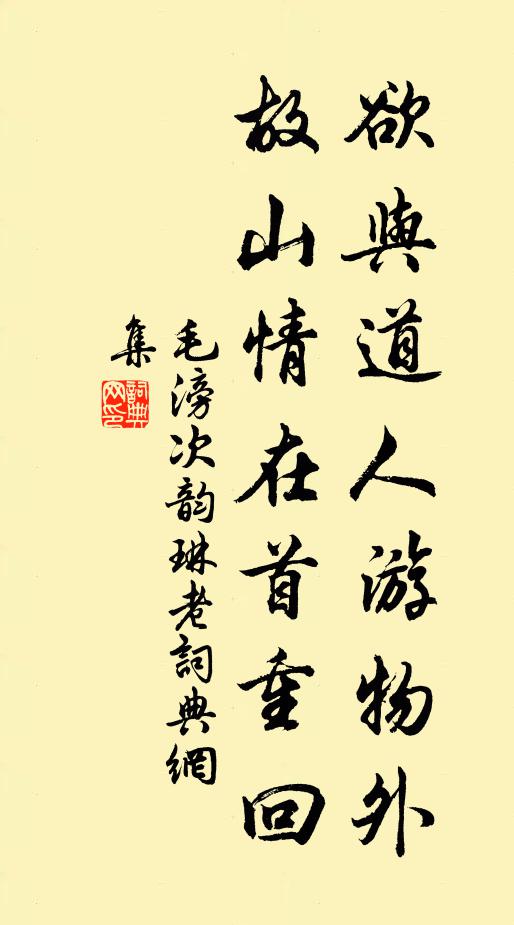 欲與道人游物外
故山情在首重回
毛滂次韵琳老詞典網
集
詞典网印